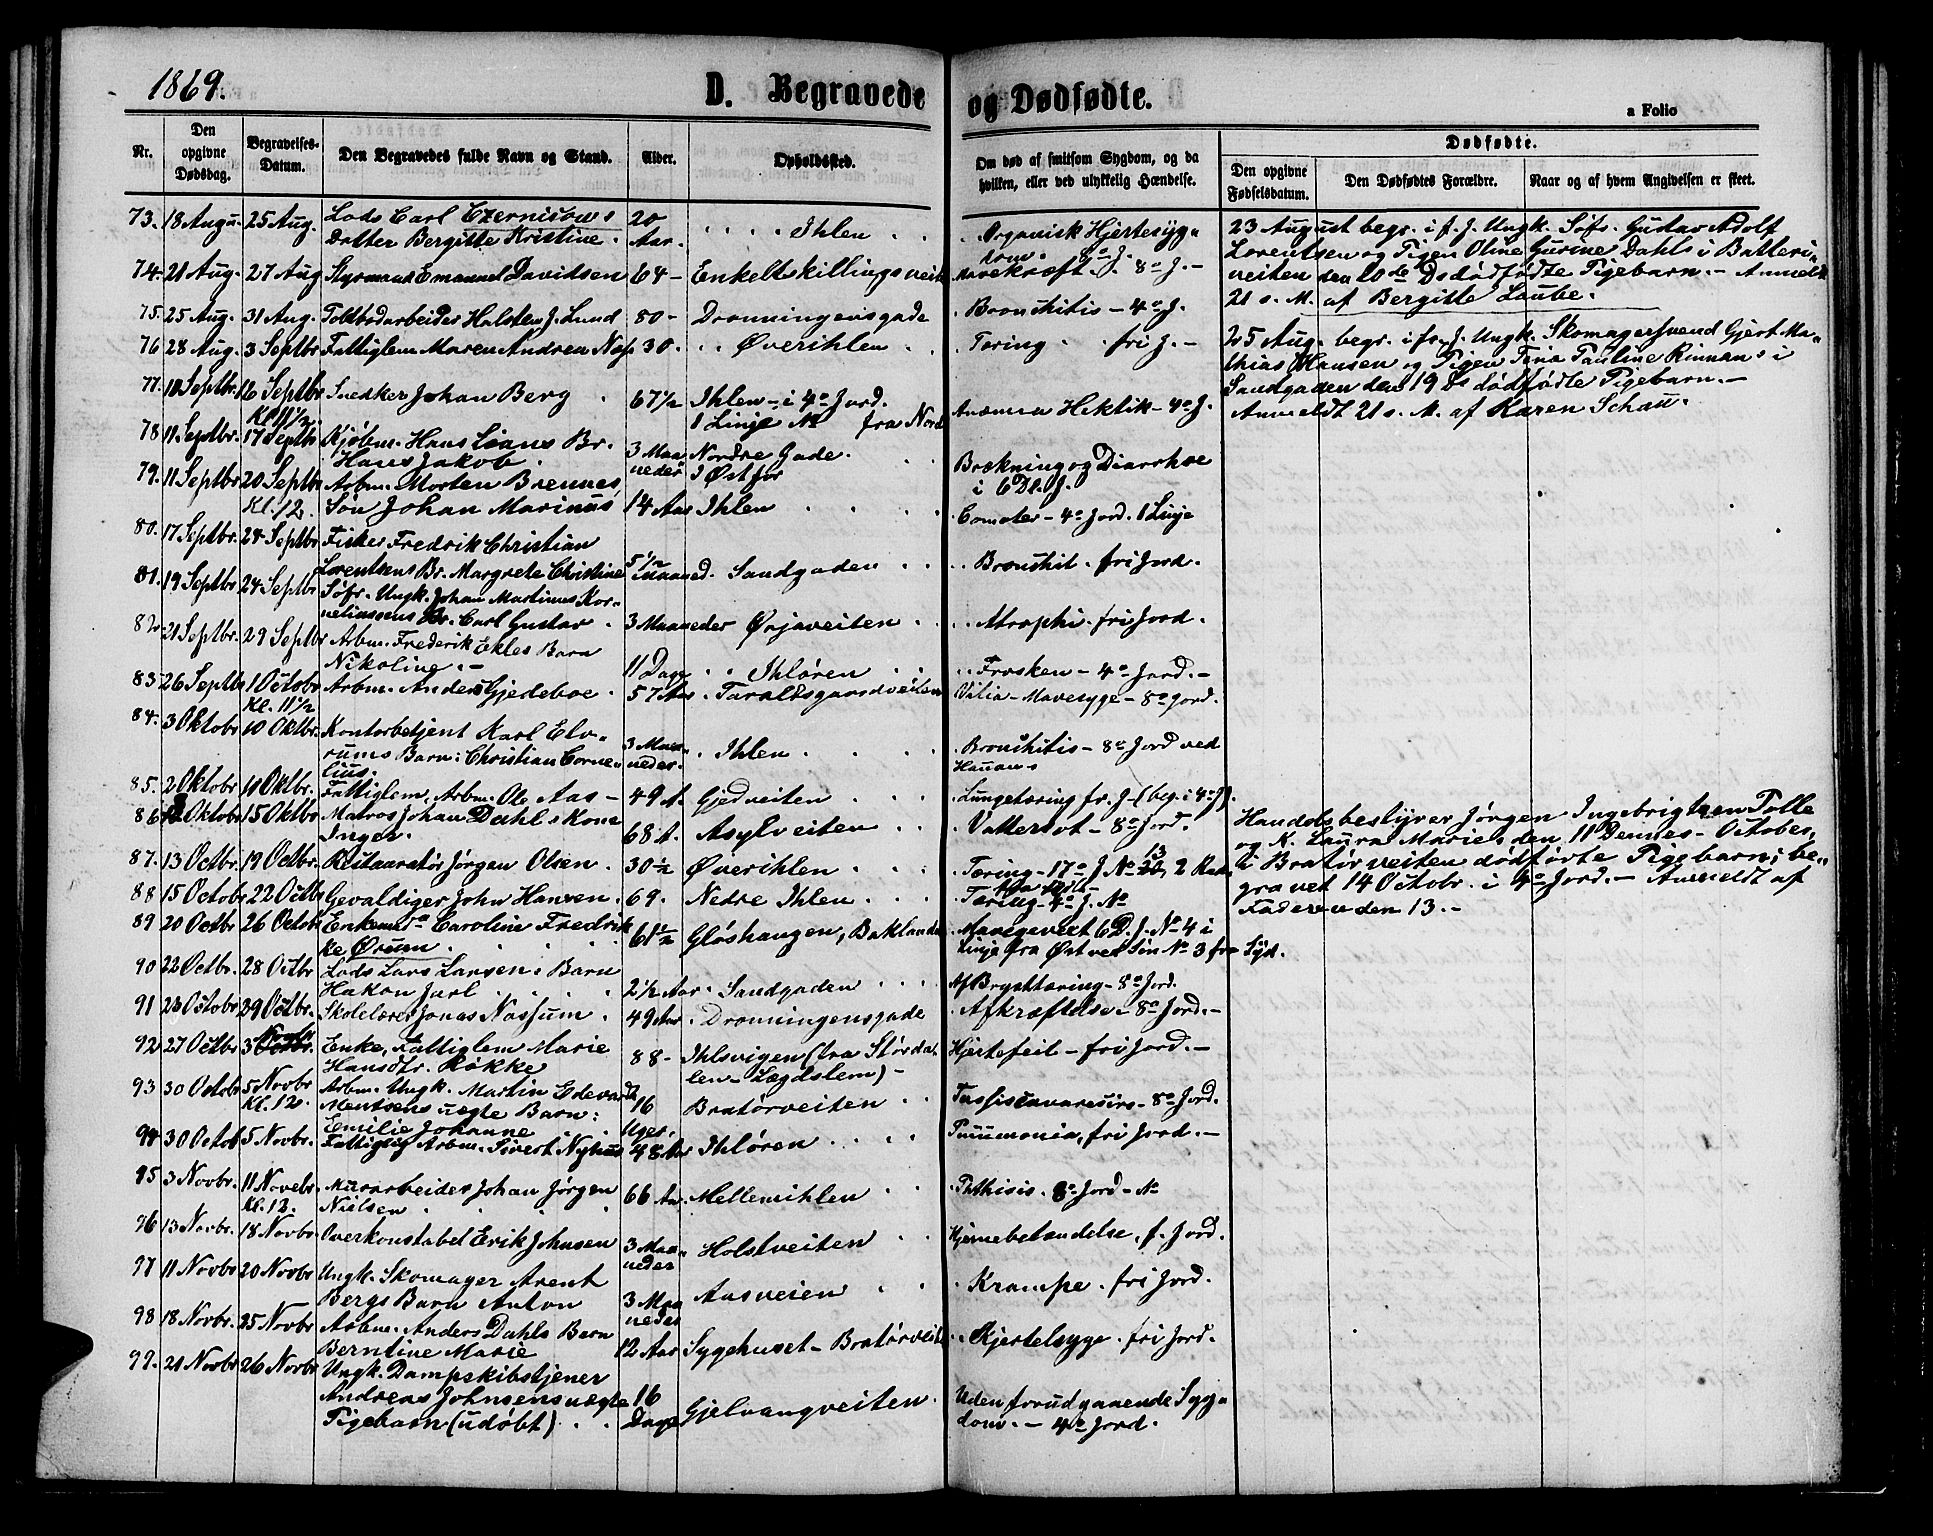 1869.
D. Begravede og Dødfødte.
a Folio
Nr.
Den opgivne Dødsdag.
Begravelses-Datum.
Den Begravedes fulde Navn og Stand.
Alder.
Opholdssted.
Om død af smitsom Sygdom, og da hvilken, eller ved ulykkelig Hændelse.
Dødfødte.
Den opgivne Fødselsdatum.
Den Dødfødtes Forældre.
Naar og af hvem Angivelsen er skeet.
73. 18 Augu. 25 Aug. Lods Carl Czernisows 20
Datter Bergitte Kristine. Aar. Ihlen Organisk Hjertesyg-
dom. 8de J.
74. 21 Aug. 27 Aug Styrmand Emanuel Davidsen 64 - Enkeltskillingsveit Marekræft. 8de J. -
75. 25 Aug. 31 Aug. Toldbodarbeider Halsten J. Lund 80 - Dronningensgade Bronchitis - 4de J.
76 28 Aug. 3 Septbr Fattiglem Maren Andrea Næss 30. Øverihlen Tæring fri J. -
77. 10 Septbr. 16 Septbr Snedker Johan Berg 67 1/2 Ihlen - i 4de Jord. Anæmia Hektik - 4de J.
Kl 11 1/2. 1 Linje No fra Nord
78 11 Septbr. 17 Septbr Kjøbm. Hans Lians Br.
Hans Jakob. 3 Maaneder Nordre Gade. Brækning og Diarrhoe
79. 11 Septbr 20 Septbr Arbm. Morten Brennes, 1 Øst for i 6 Dl. J.
Kl. 12. Søn Johan Marinus 14 Aar Ihlen Comoter - 4de Jord. 1 Linje
80. 17 Septbr. 24 Septbr Fisker Fredrik Christian
Lorentsens Br. Margrete Christine 5 1/2 Maaned. Sandgaden Bronchit. fri Jord.
81. 19 Septbr 24 Septbr Søfr. Ungk. Johan Martinus Kor-
neliussens Br. Carl Gustav 3 Maaneder Ørjaveiten Atrophi. fri Jord.
82. 21 Septbr. 29 Septbr Arbm. Frederik Ekles Barn
Nikoline. - 11 Dage Ihløren Frosken - 4de Jord. -
83. 26 Septbr 1 Octobr Arbm. Anders Gjedeboe 57 Aar Taraldsgaardveiten Vitia - Mavesyge - 8de Jord.
Kl. 11 1/2
84. 3 Oktobr 10 Oktbr. Kontorbetjent Karl Elv-
rums Barn: Christian Corne- 3 Maaneder. Ihlen. Bronchitis - 8de Jord ved
lius. Hanans
85. 2 Oktobr 11 Oktbr. Fattiglem, Arbm. Ole Aas - 49 A. Gjedveiten Lungetæring fr. J - (beg. i 4de J).
86 Oktobr 15 Oktbr Matros Johan Dahls Kone
Inger. 68 A. Asylveiten Vattersot - 8de Jord.
87. 13 Octbr. 19 Octbr. Restauratør Jørgen Olsen 30 1/2 Øverihlen Tæring - 17de J. No 13 2 Rad
88 15 Octobr 22 Octbr Gevaldiger John Hansen. 69. Nedre Ihlen Tæring - 4de J. No
89 20 Octbr. 26 Octobr Enkemda Caroline Fredrik
ke Ørum 61 1/2 Gløshaugen, Baklandet Mavegevext 6 D. J. No 4 i
Linje fra Øst ved Søn No 3 fra Syd.
90 22 Octbr. 28 Octbr Lods Lars Larsens Barn
Hakon Jarl 2 1/2 Aar. Sandgaden Af Brysttæring - 8de Jord.
91 23 Octobr 29 Octbr. Skolelærer Jonas Nossum 49 Aar Dronningensgade Afkræftelse - 8de Jord. -
92 27 Octbr 3 Novbr Enke, Fattiglem Marie
Hansdtr. Røkke 88 - Ihlsvigen (fra Størdalen - Lægdslem) - Hjertefeil - fri Jord. -
93 30 Octobr 5 Novbr Arbm. Ungk. Martin Edevard
Kl. 12. Mentsens uægte Barn: 16 Bratørveiten 8de Jord.
Emilie Johanne Uger.
94 30 Octobr 5 Novbr. Fattiglem Arbm. Sivert Nyhus 48 Aar Ihløren Pneumonia, fri Jord. -
95 3 Novbr. 11 Novebr. Murarbeider Johan Jørgen
Kl. 12. Nielsen 66 Aar. Mellemihlen Phthisis. 8de Jord - No
96 13 Novbr. 18 Novbr. Overkonstabel Erik Johnsen 3 Maaneder Holstveiten Hjernebetændelse. f. Jord.
97 11 Novbr 20 Novbr Ungk. Skomager Arent
Bergs Barn Anton 3 Maaneder Aasveien Krampe. fri Jord.
98 18 Novbr. 25 Novbr Arbm. Anders Dahls Barn
Berntine Marie 12 Aar Sygehuset - Bratørveite Kjertelsyge. fri Jord.
99. 21 Novbr 26 Novbr Ungk. Dampskibstjener
Andreas Johnsens uægte 16
Pigebarn (udøbt) Dage Gjelvangveiten Uden forudgaaende Syg-
dom. - 4de Jord.
23 August begr. i f. J. Ungk. Søfr. Gustav Adolf
Lorentsen og Pigen Oline Gurine Dahls i Batteri-
veiten den 20de Ds dødfødte Pigebarn. - Anmeldt
21 s. M. af Bergitte Laube.
25 Aug. begr. i fr. J. Ungk. Skomagersvend Gjert Ma-
thias Hansen og Pigen Tina Pauline Rinnans i
Sandgaden den 19 Ds dødfødte Pigebarn. -
Anmeldt 21 s. M. af Karen Schau.
Handelsbestyrer Jørgen Ingebrigtsen Tolle
og K. Laura Maries den 11 Dennes - October,
i Bratørveiten dødfødte Pigebarn; be-
gravet 14 Octobr. i 4de Jord. - Anmeldt af
Faderen den 13. -